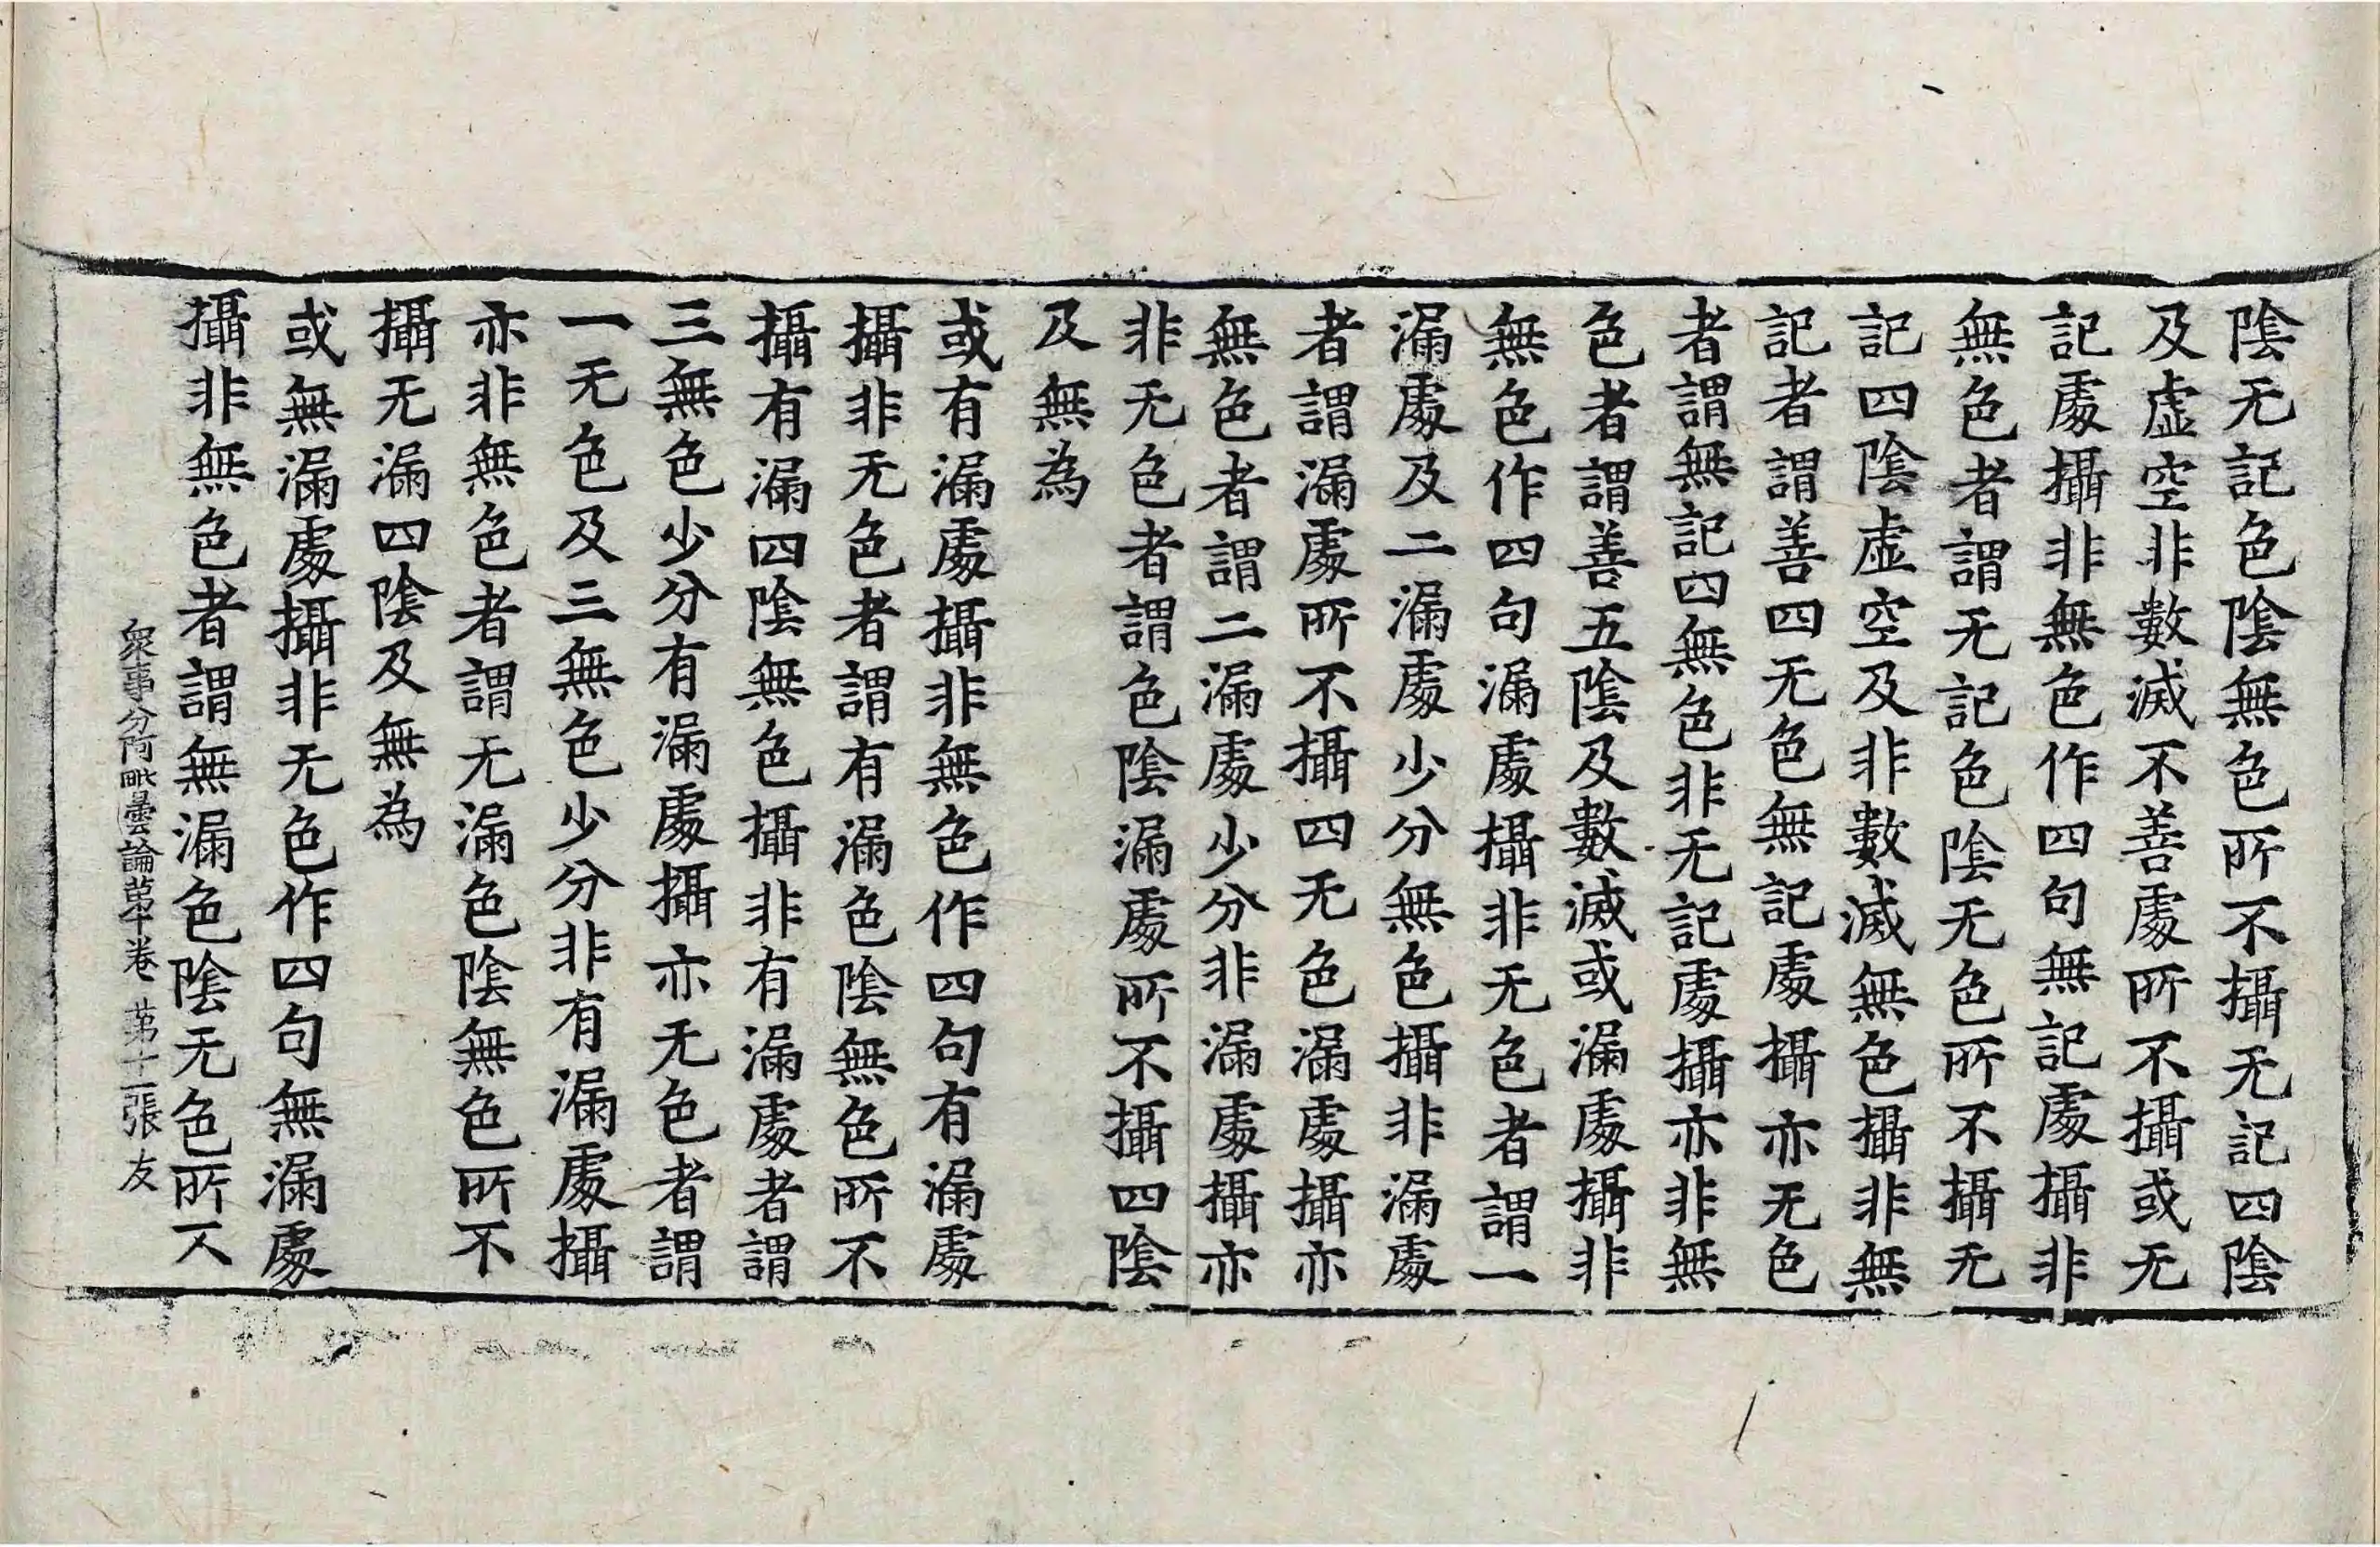 陰无記色陰無色所不攝无記四陰
及虛空非數滅不善處所不攝或无
記處攝非無色作四句無記處攝非
無色者謂无記色陰无色所不攝无
記四陰虛空及非數滅無色攝非無
記者謂善四无色無記處攝亦无色
者謂無記四無色非无記處攝亦非無
色者謂善五陰及數滅或漏處攝非
無色作四句漏處攝非无色者謂一
漏處及二漏處少分無色攝非漏處
者謂漏處所不攝四无色漏處攝亦
無色者謂二漏處少分非漏處攝亦
非无色者謂色陰漏處所不攝四陰
及無為
或有漏處攝非無色作四句有漏處
攝非无色者謂有漏色陰無色所不
攝有漏四陰無色攝非有漏處者謂
三無色少分有漏處攝亦无色者謂
一无色及三無色少分非有漏處攝
亦非無色者謂无漏色陰無色所不
攝无漏四陰及無為
或無漏處攝非无色作四句無漏處
攝非無色者謂無漏色陰无色所不
眾事分阿毗曇論苐十卷 苐十二張 友